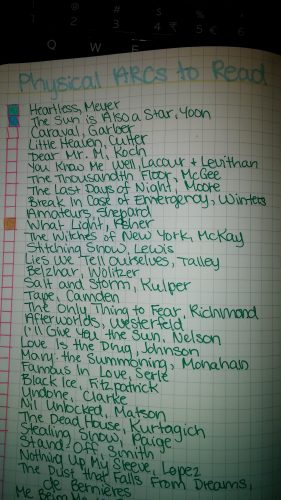 Physical ARCs to Read
Heartless, Meyer
The Sun is Also a Star, Yoon
Caraval, Garber
Little Heaven, Cutter
Dear Mr. M, Koch
You Know Me Well, Lacour + Levithan
The Thousandth Floor, McGee
The Last Days of Night, Moore
Break In Case of Emergency, Winters
Amateurs, Shepard
What Light, Asher
The Witches of New York, McKay
Stitching Snow, Lewis
Lies We Tell Ourselves, Talley
Belzhar, Wolitzer
Salt and Storm, Kulper
Tape, Camden
The Only Thing to Fear, Richmond
Afterworlds, Westerfeld
I'll Give You the Sun, Nelson
Love Is the Drug, Johnson
Mary: the Summoning, Monahan
Famous in Love, Serle
Black Ice, Fitzpatrick
Undone, Clarke
Nil Unlocked, Matson
The Dead House, Kurtagich
Stealing Snow, Paige
Stand-Off, Smith
Nothing Up My Sleeve, Lopez
The Dust that Falls From Dreams,
de Bernieres
Me Being Me